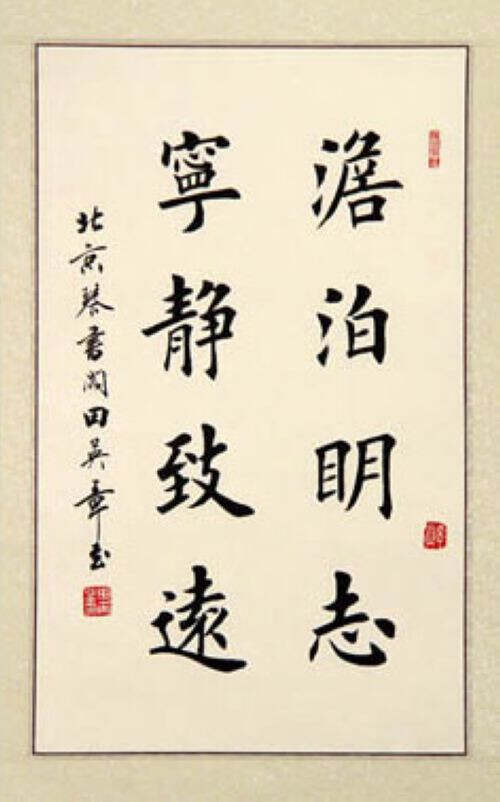 澹泊明志
寧静致遠
北京琴書阁田英章书